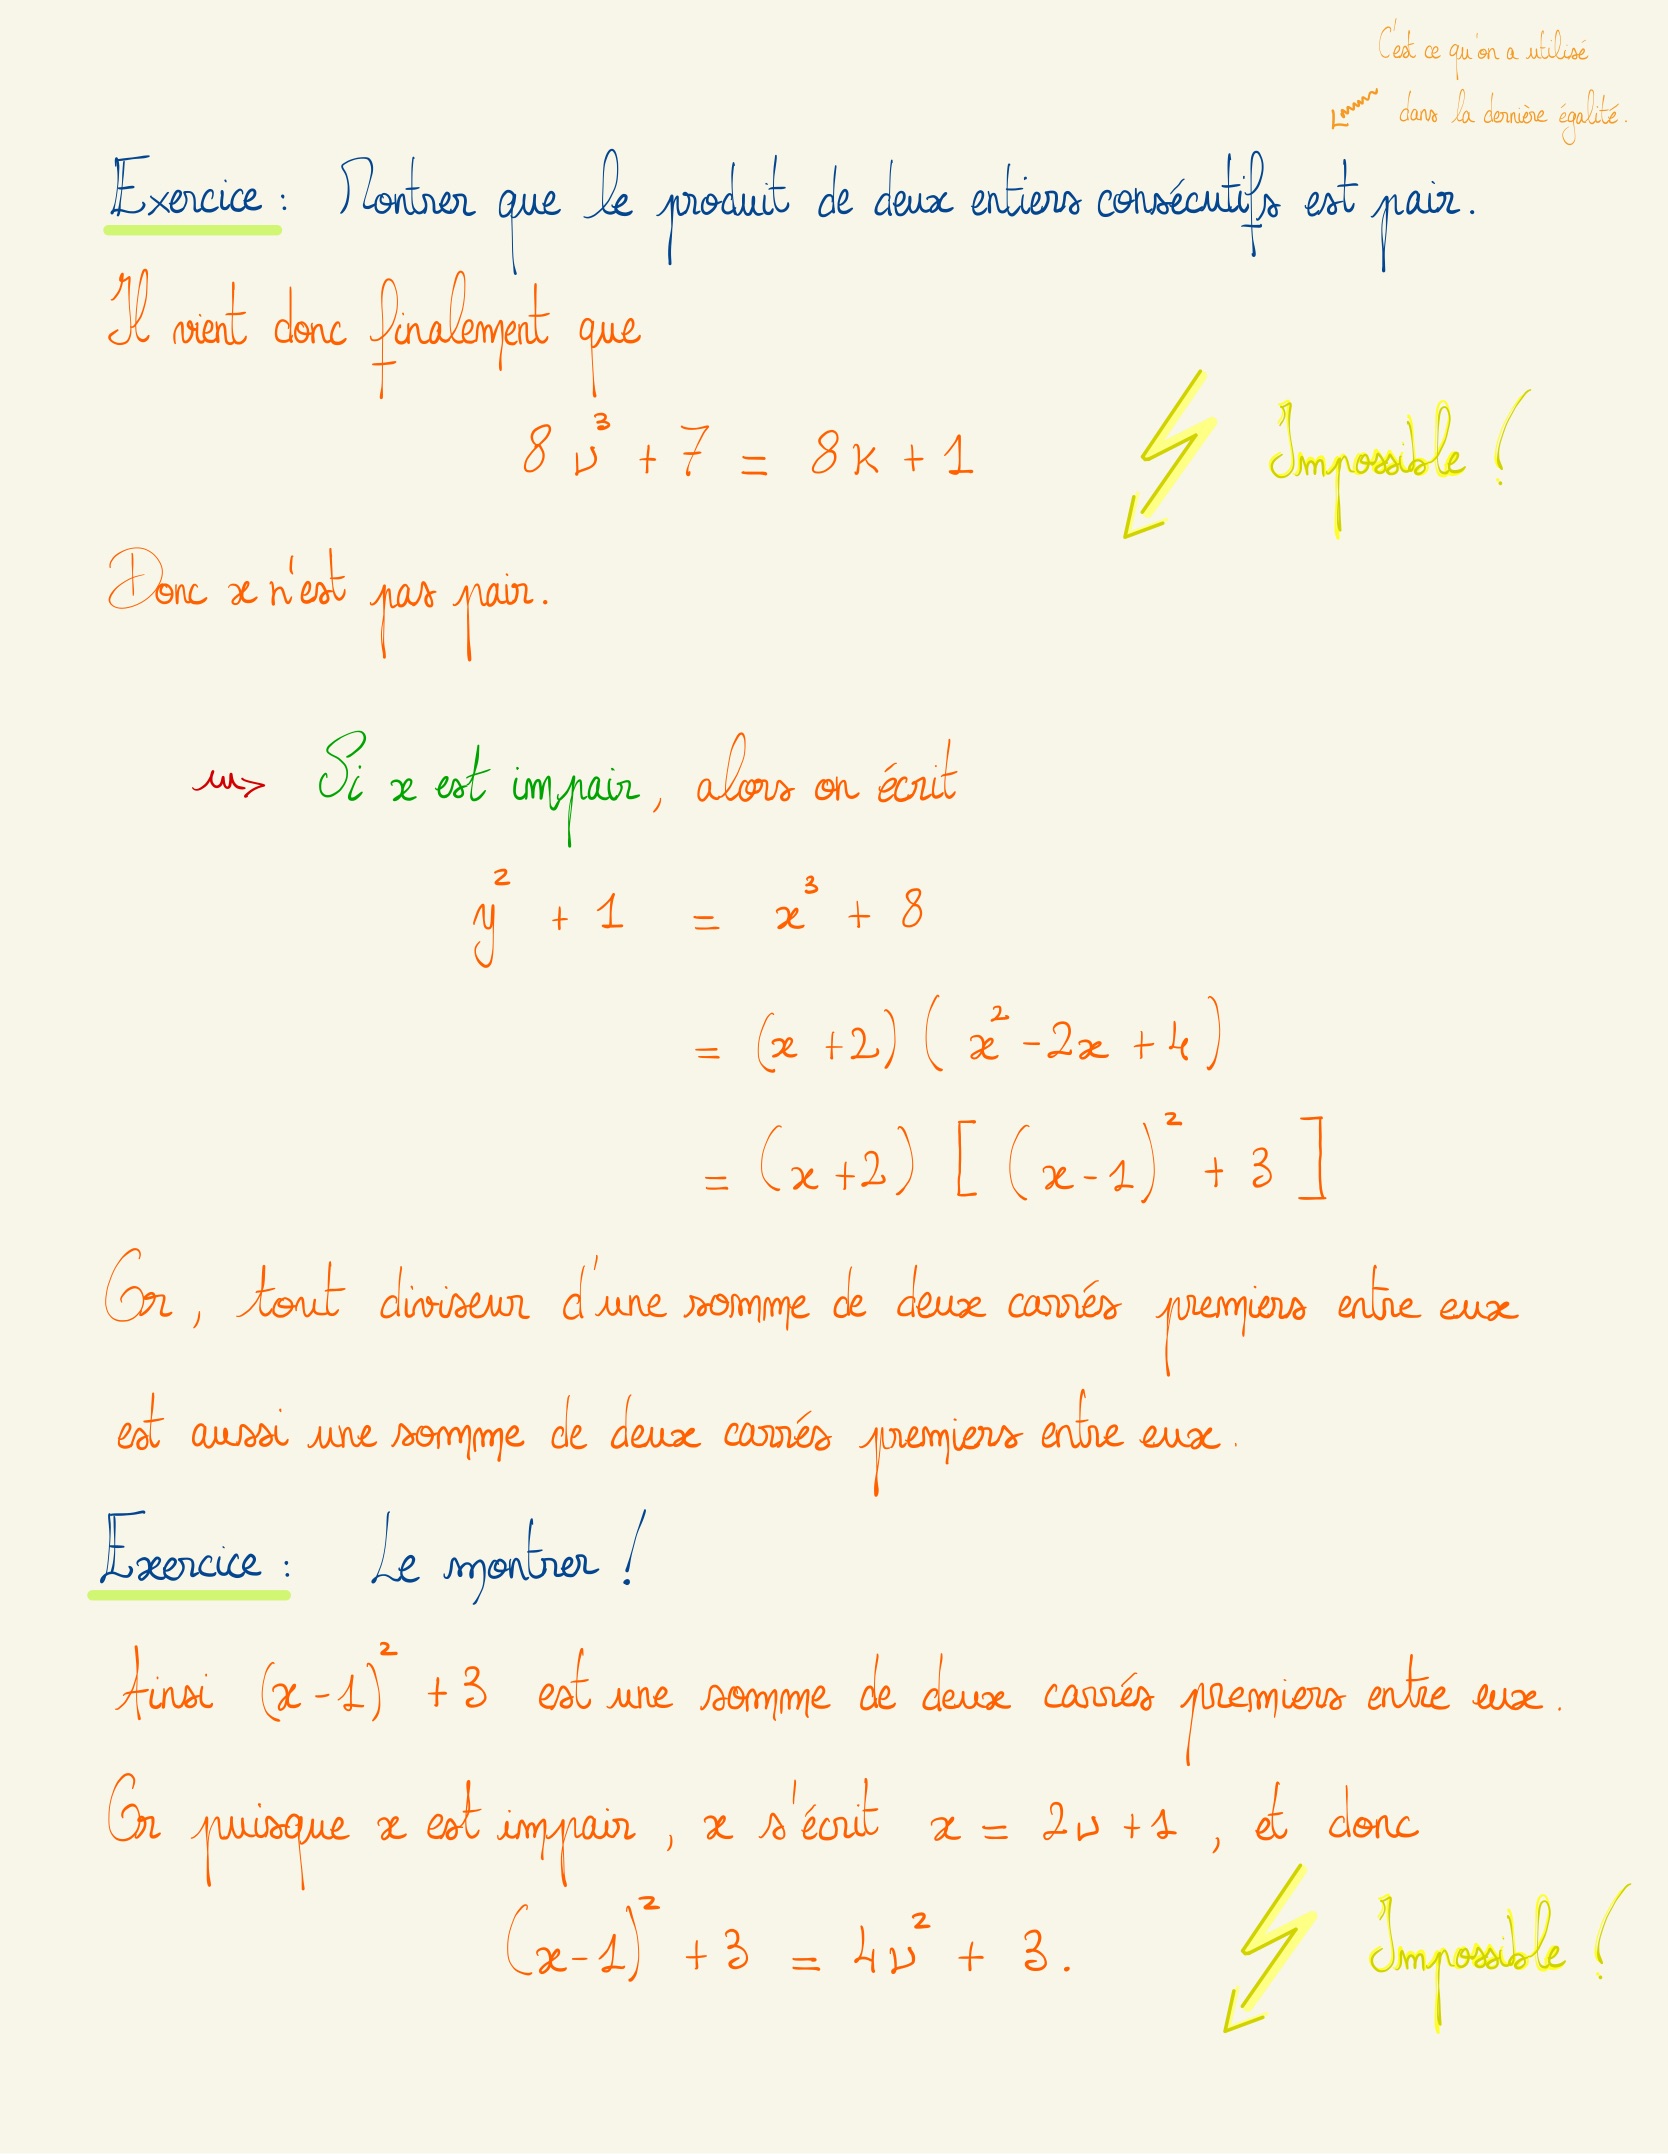 C'est ce qu'on a utilisé
dans la dernière égalité.
Exercice : Montrer que le produit de deux entiers consécutifs est pair.
Il vient donc finalement que
8ν³ + 7 = 8κ + 1
Impossible !
Donc x n'est pas pair.
Si x est impair, alors on écrit
y² + 1 = x³ + 8
= (x + 2) ( x² - 2x + 4 )
= (x + 2) [ (x - 1)² + 3 ]
Or, tout diviseur d'une somme de deux carrés premiers entre eux
est aussi une somme de deux carrés premiers entre eux.
Exercice : Le montrer !
Ainsi (x - 1)² + 3 est une somme de deux carrés premiers entre eux.
Or puisque x est impair, x s'écrit x = 2ν + 1, et donc
(x - 1)² + 3 = 4ν² + 3.
Impossible !